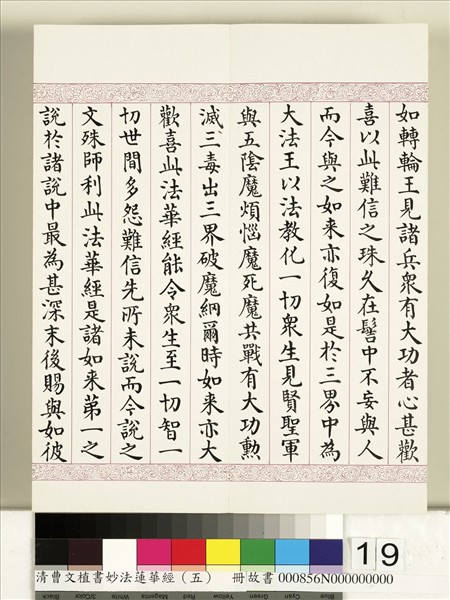 如轉輪王見諸兵衆有大功者心甚歡
喜以此難信之珠久在髻中不妄與人
而今與之如来亦復如是於三界中為
大法王以法教化一切衆生見賢聖軍
與五陰魔煩惱魔死魔共戰有大功勲
滅三毒出三界破魔網爾時如来亦大
歡喜此法華經能令衆生至一切智一
切世間多怨難信先所未說而今說之
文殊師利此法華經是諸如来第一之
說於諸說中最為甚深末後賜與如彼
19
清曹文植書妙法蓮華經（五） 冊故書 000856N000000000
Black 3/Color White Magenta Red Yellow Green Cyan Blue